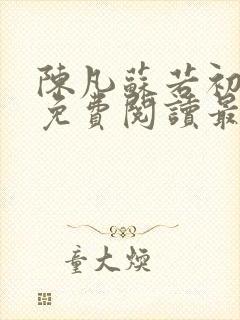 陳凡蘇若初
免費閱讀最
童大煥